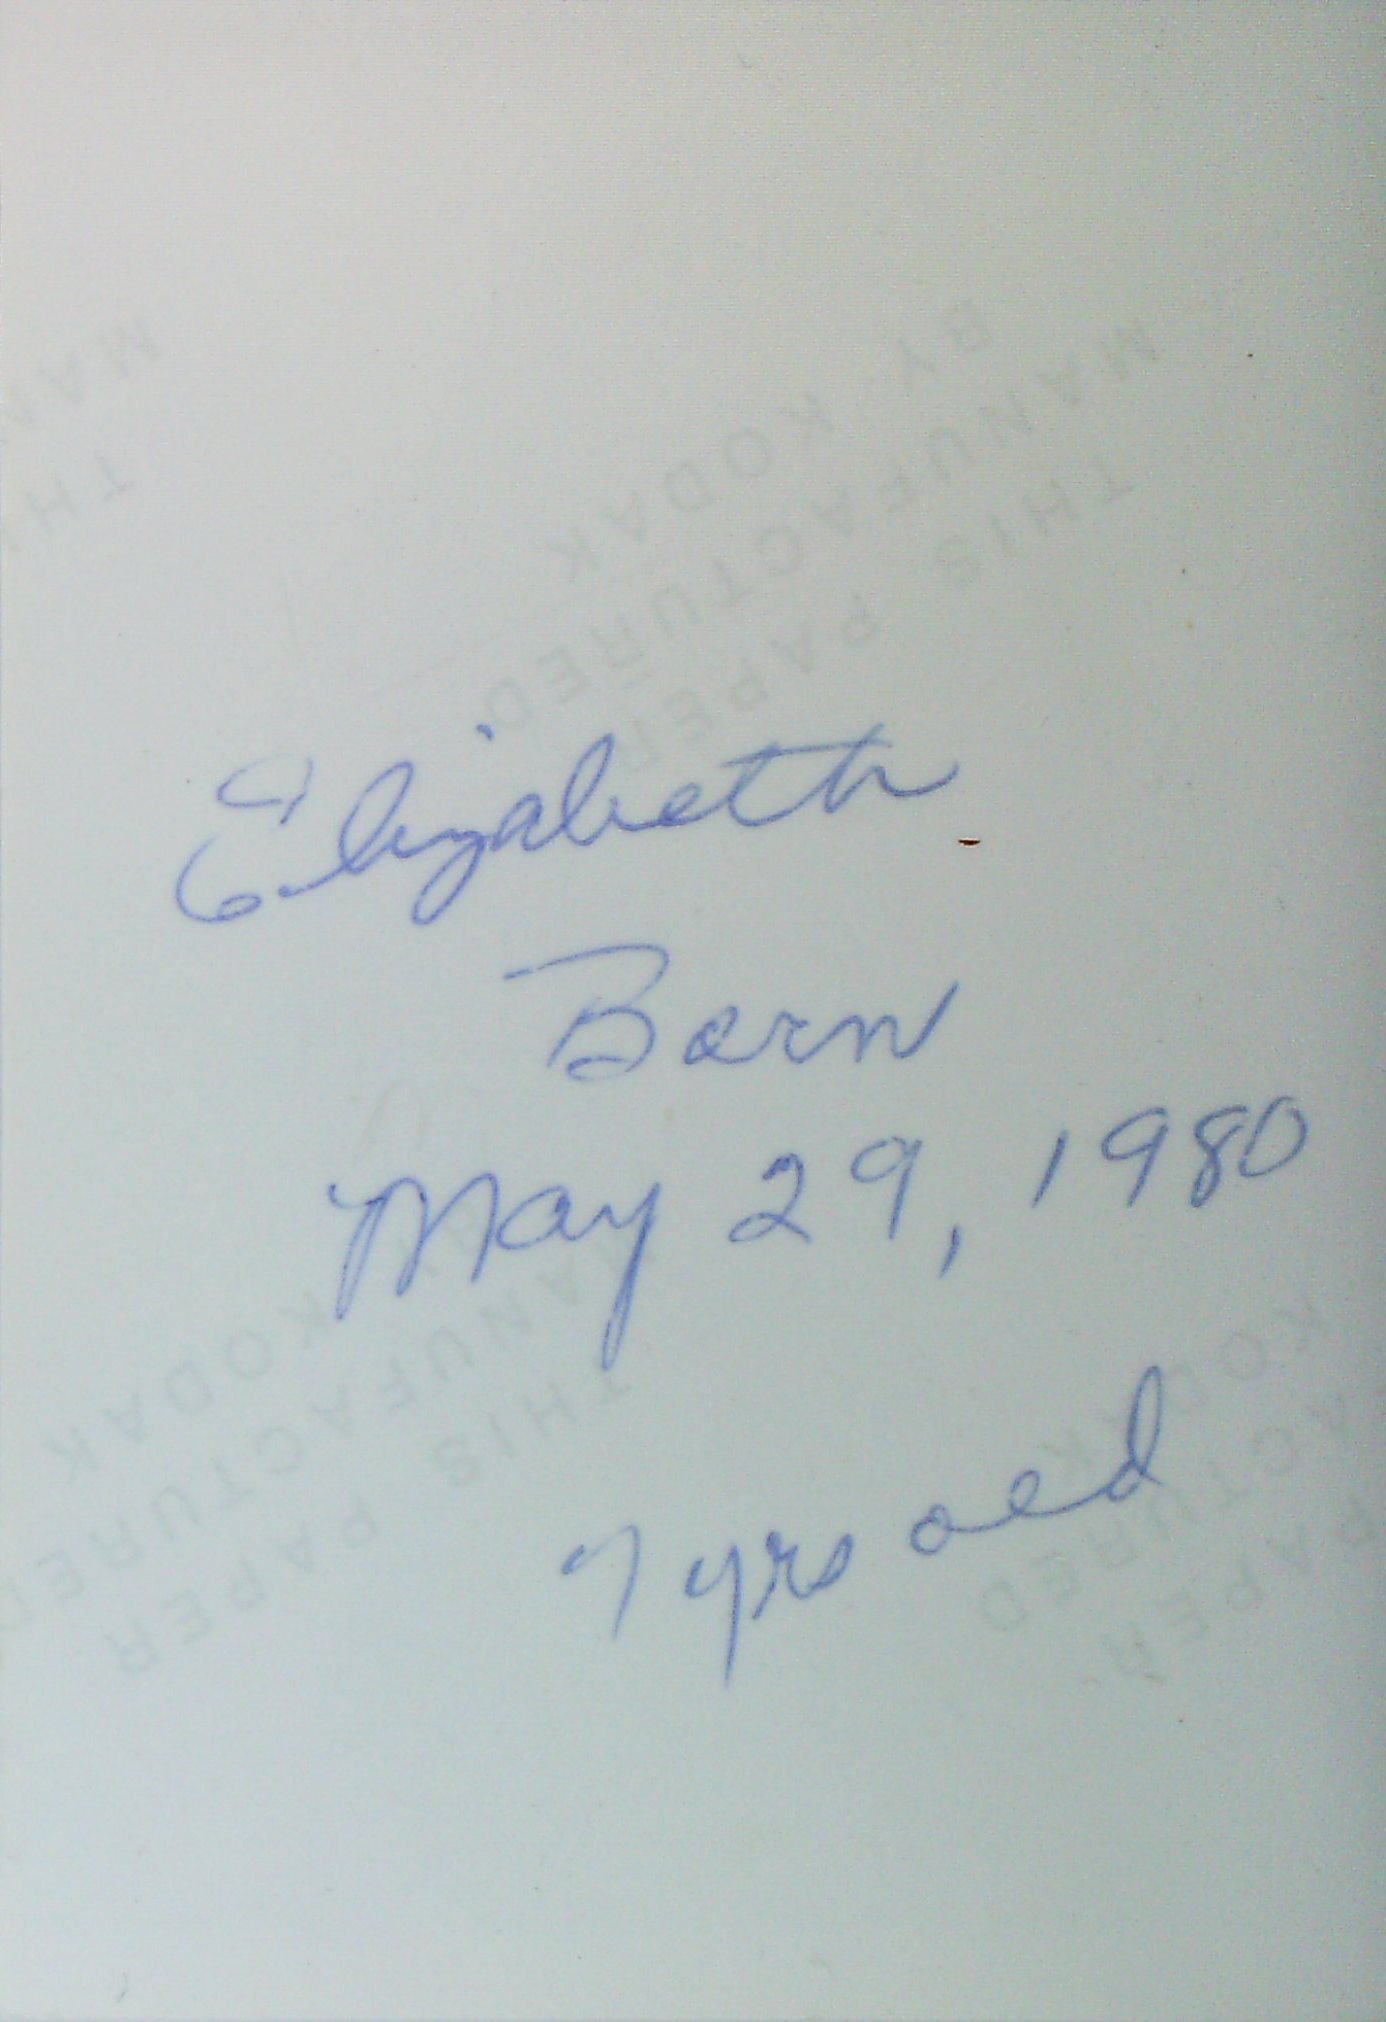 Elizabeth
Born
May 29, 1980
7 yrs old
THIS PAPER
MANUFACTURED
BY KODAK
THIS PAPER
MANUFACTURED
KODAK
PAPER
KODAK